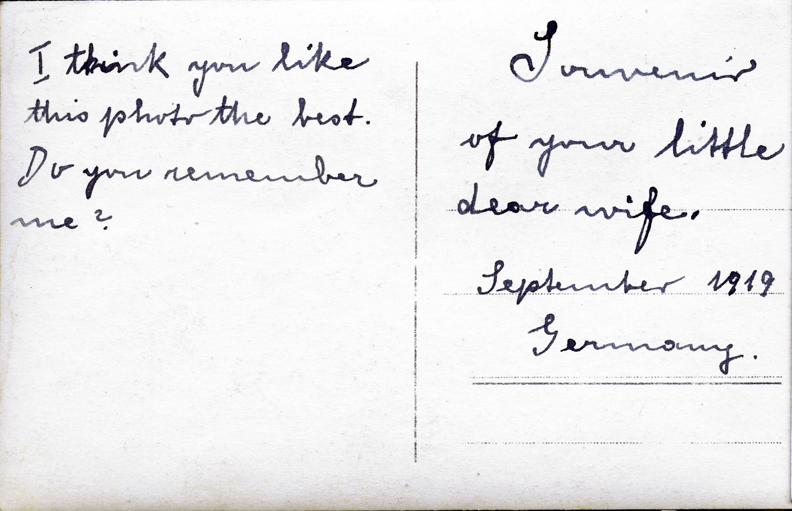 I think you like
this photo the best.
Do you remember
me?
Souvenir
of your little
dear wife.
September 1919
Germany.